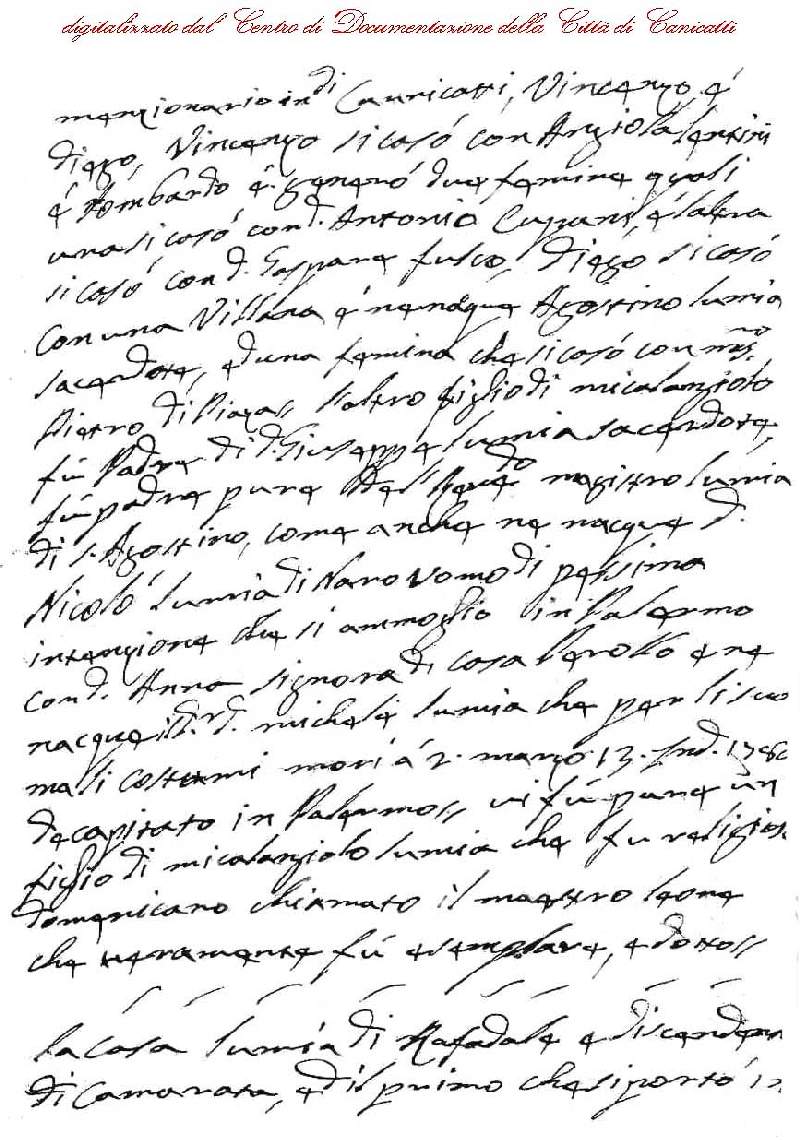 digitalizzato dal Centro di Documentazione della Città di Canicattì
menzionario in di Cannicatti, Vincenzo é
diego, Vincenzo si casó con Angiola lentini
é lombardo é generó due femine quali
una si casó con d. Antonio Cuppani, é l'altra
si casó con d. Gaspare fulco, Diego si casó
con una Villana é ne nacque Agostino lumia
sacerdote, ed una femina che si casó con mro
Pietro di Piazza l'altro figlio di micalangiolo
fú Padre di d. Giuseppe lumia sacerdote,
fú padre pure del Revdo magistro lumia
di s. Agostino, come anche ne nacque d.
Nicoló lumia di Naro Uomo di pessima
intenzione che si ammoglió in Palermo
con d. Anna signora di casa Perollo e ne
nacque il d.r d. micheli lumia che per li suo
mali costumi morí á 2. marzo 13. Ind. 1780
decapitato in Palermo// vi fú pure un
figlio di micalangiolo lumia che fu religioso
domenicano chiamato il maestro leone
che veramente fú esemplare, e dotto//
la casa lumia di Rafadale e discenden
di Camarata, ed il primo che si portó in